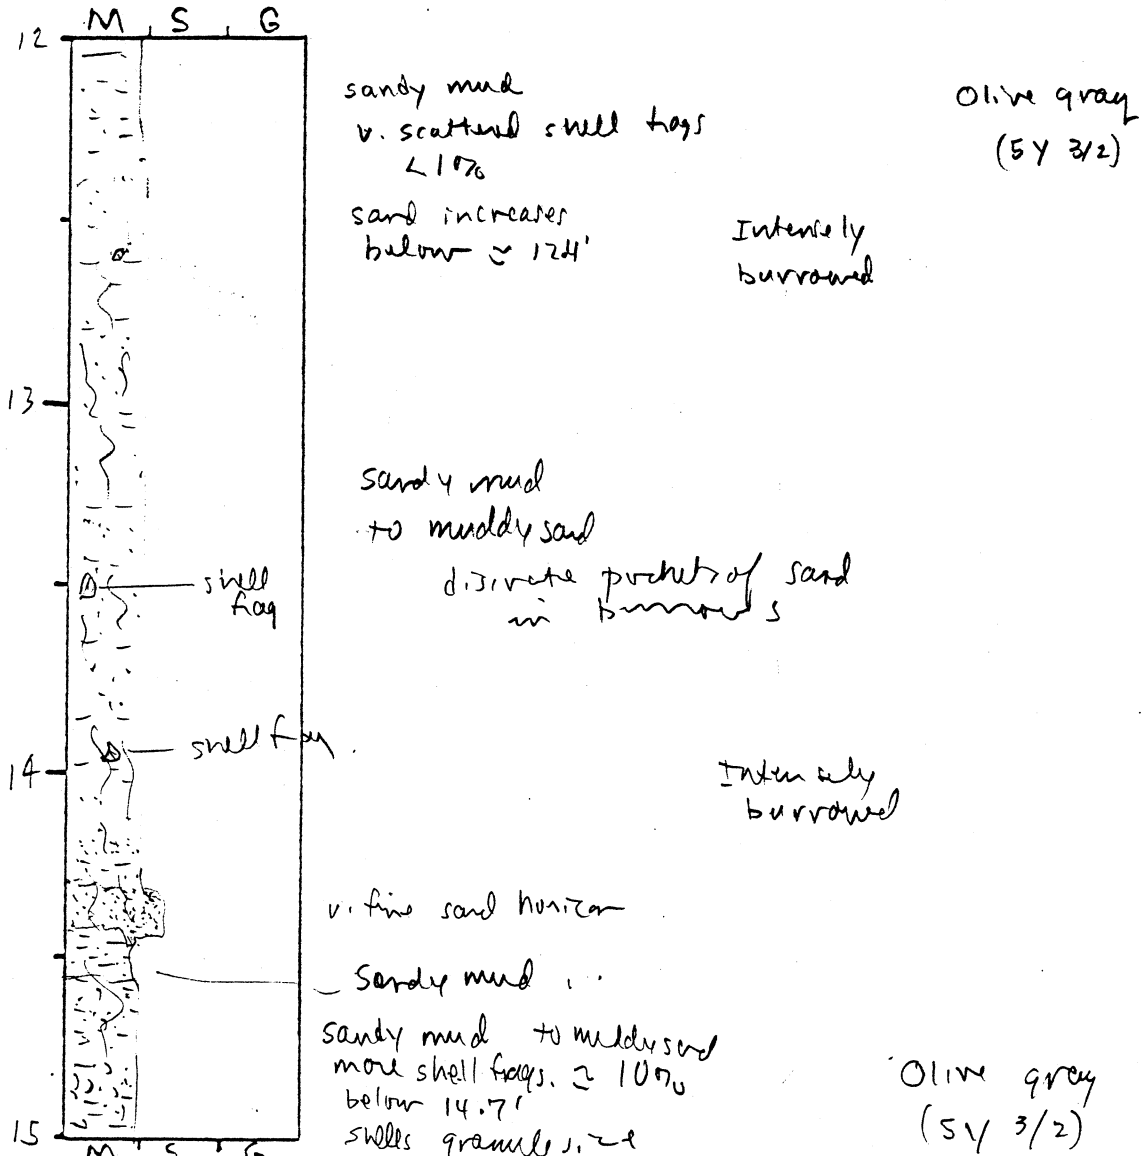 M S G
12
sandy mud
v. scattered shell frags
<1%
Olive gray
(5Y 3/2)
sand increases
below ≃ 12.4'
Intensely
burrowed
13
sandy mud
to muddy sand
discrete pockets of sand
in burrows
shell
frag
shell frag
14
Intensely
burrowed
v. fine sand horizon
Sandy mud
sandy mud to muddy sand
more shell frags. ≃ 10%
below 14.7'
shells granule size
Olive gray
(5Y 3/2)
15
M S G